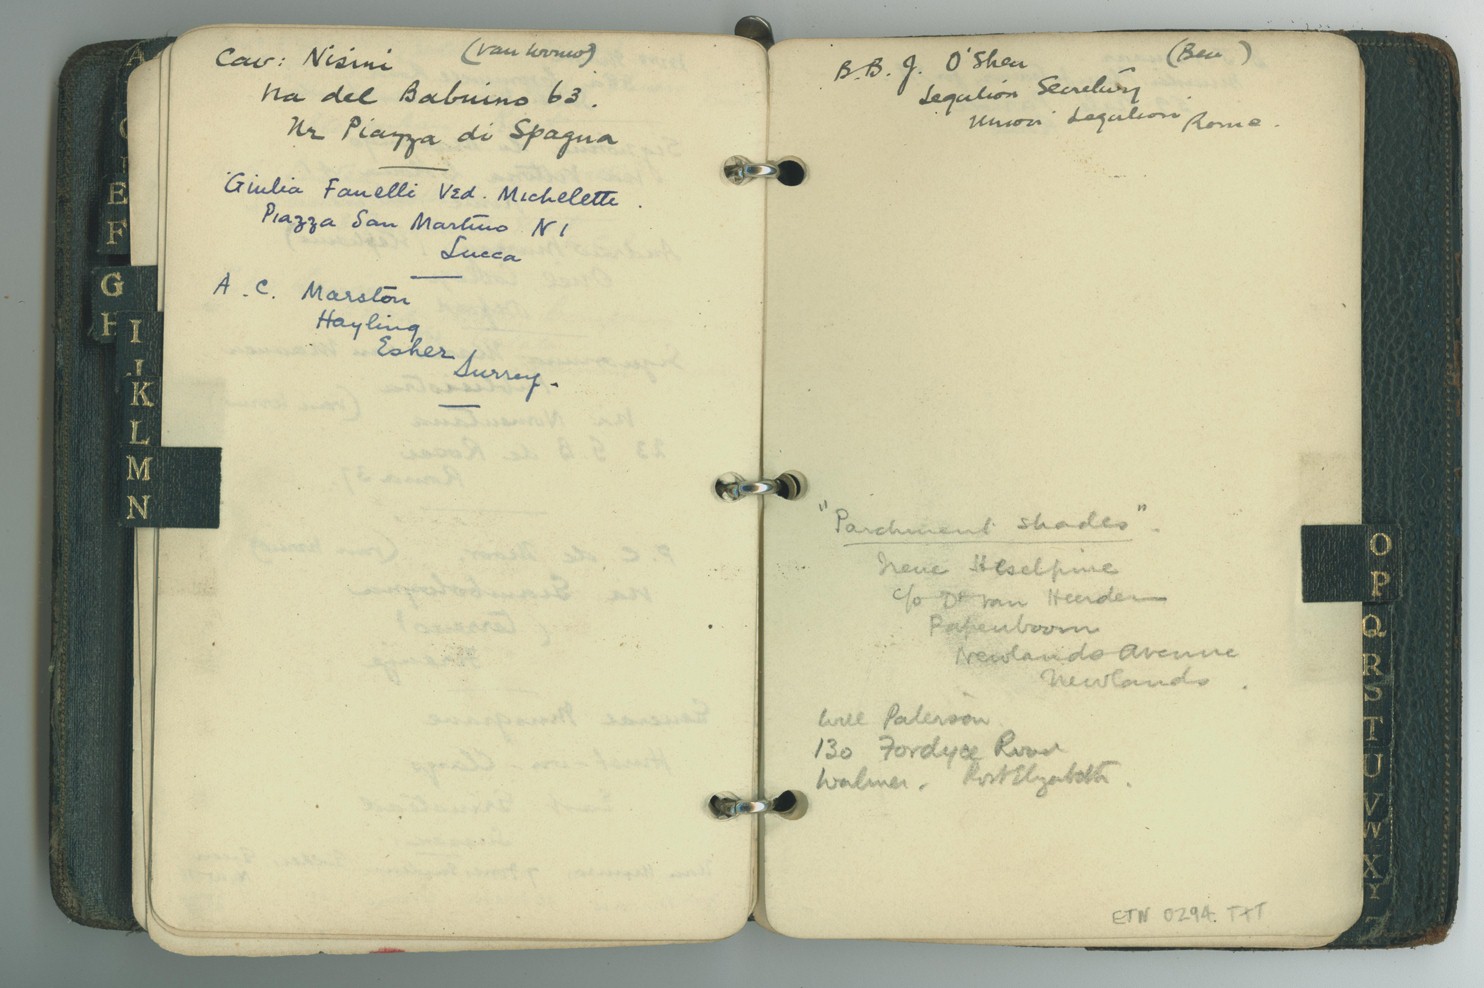 Cav: Nisini (van Wouw)
Via del Babuino 63.
Nr Piazza di Spagna
Giulia Fanelli Ved. Michelette.
Piazza San Martino N 1
Lucca
A. C. Marston
Hayling
Esher
Surrey.
B. B. J. O'Shea (Ben)
Legation Secretary
Union Legation Rome.
"Parchment shades".
Irene Heselpine
c/o Dr van Heerden
Papenboom
Newlands Avenue
Newlands.
Paterson
130 Fordyce Road
Walmer. Port Elizabeth.
ETN 0294 TXT
A
E
F
G
H
I
J
K
L
M
N
O
P
Q
R
S
T
U
V
W
X
Y
Z